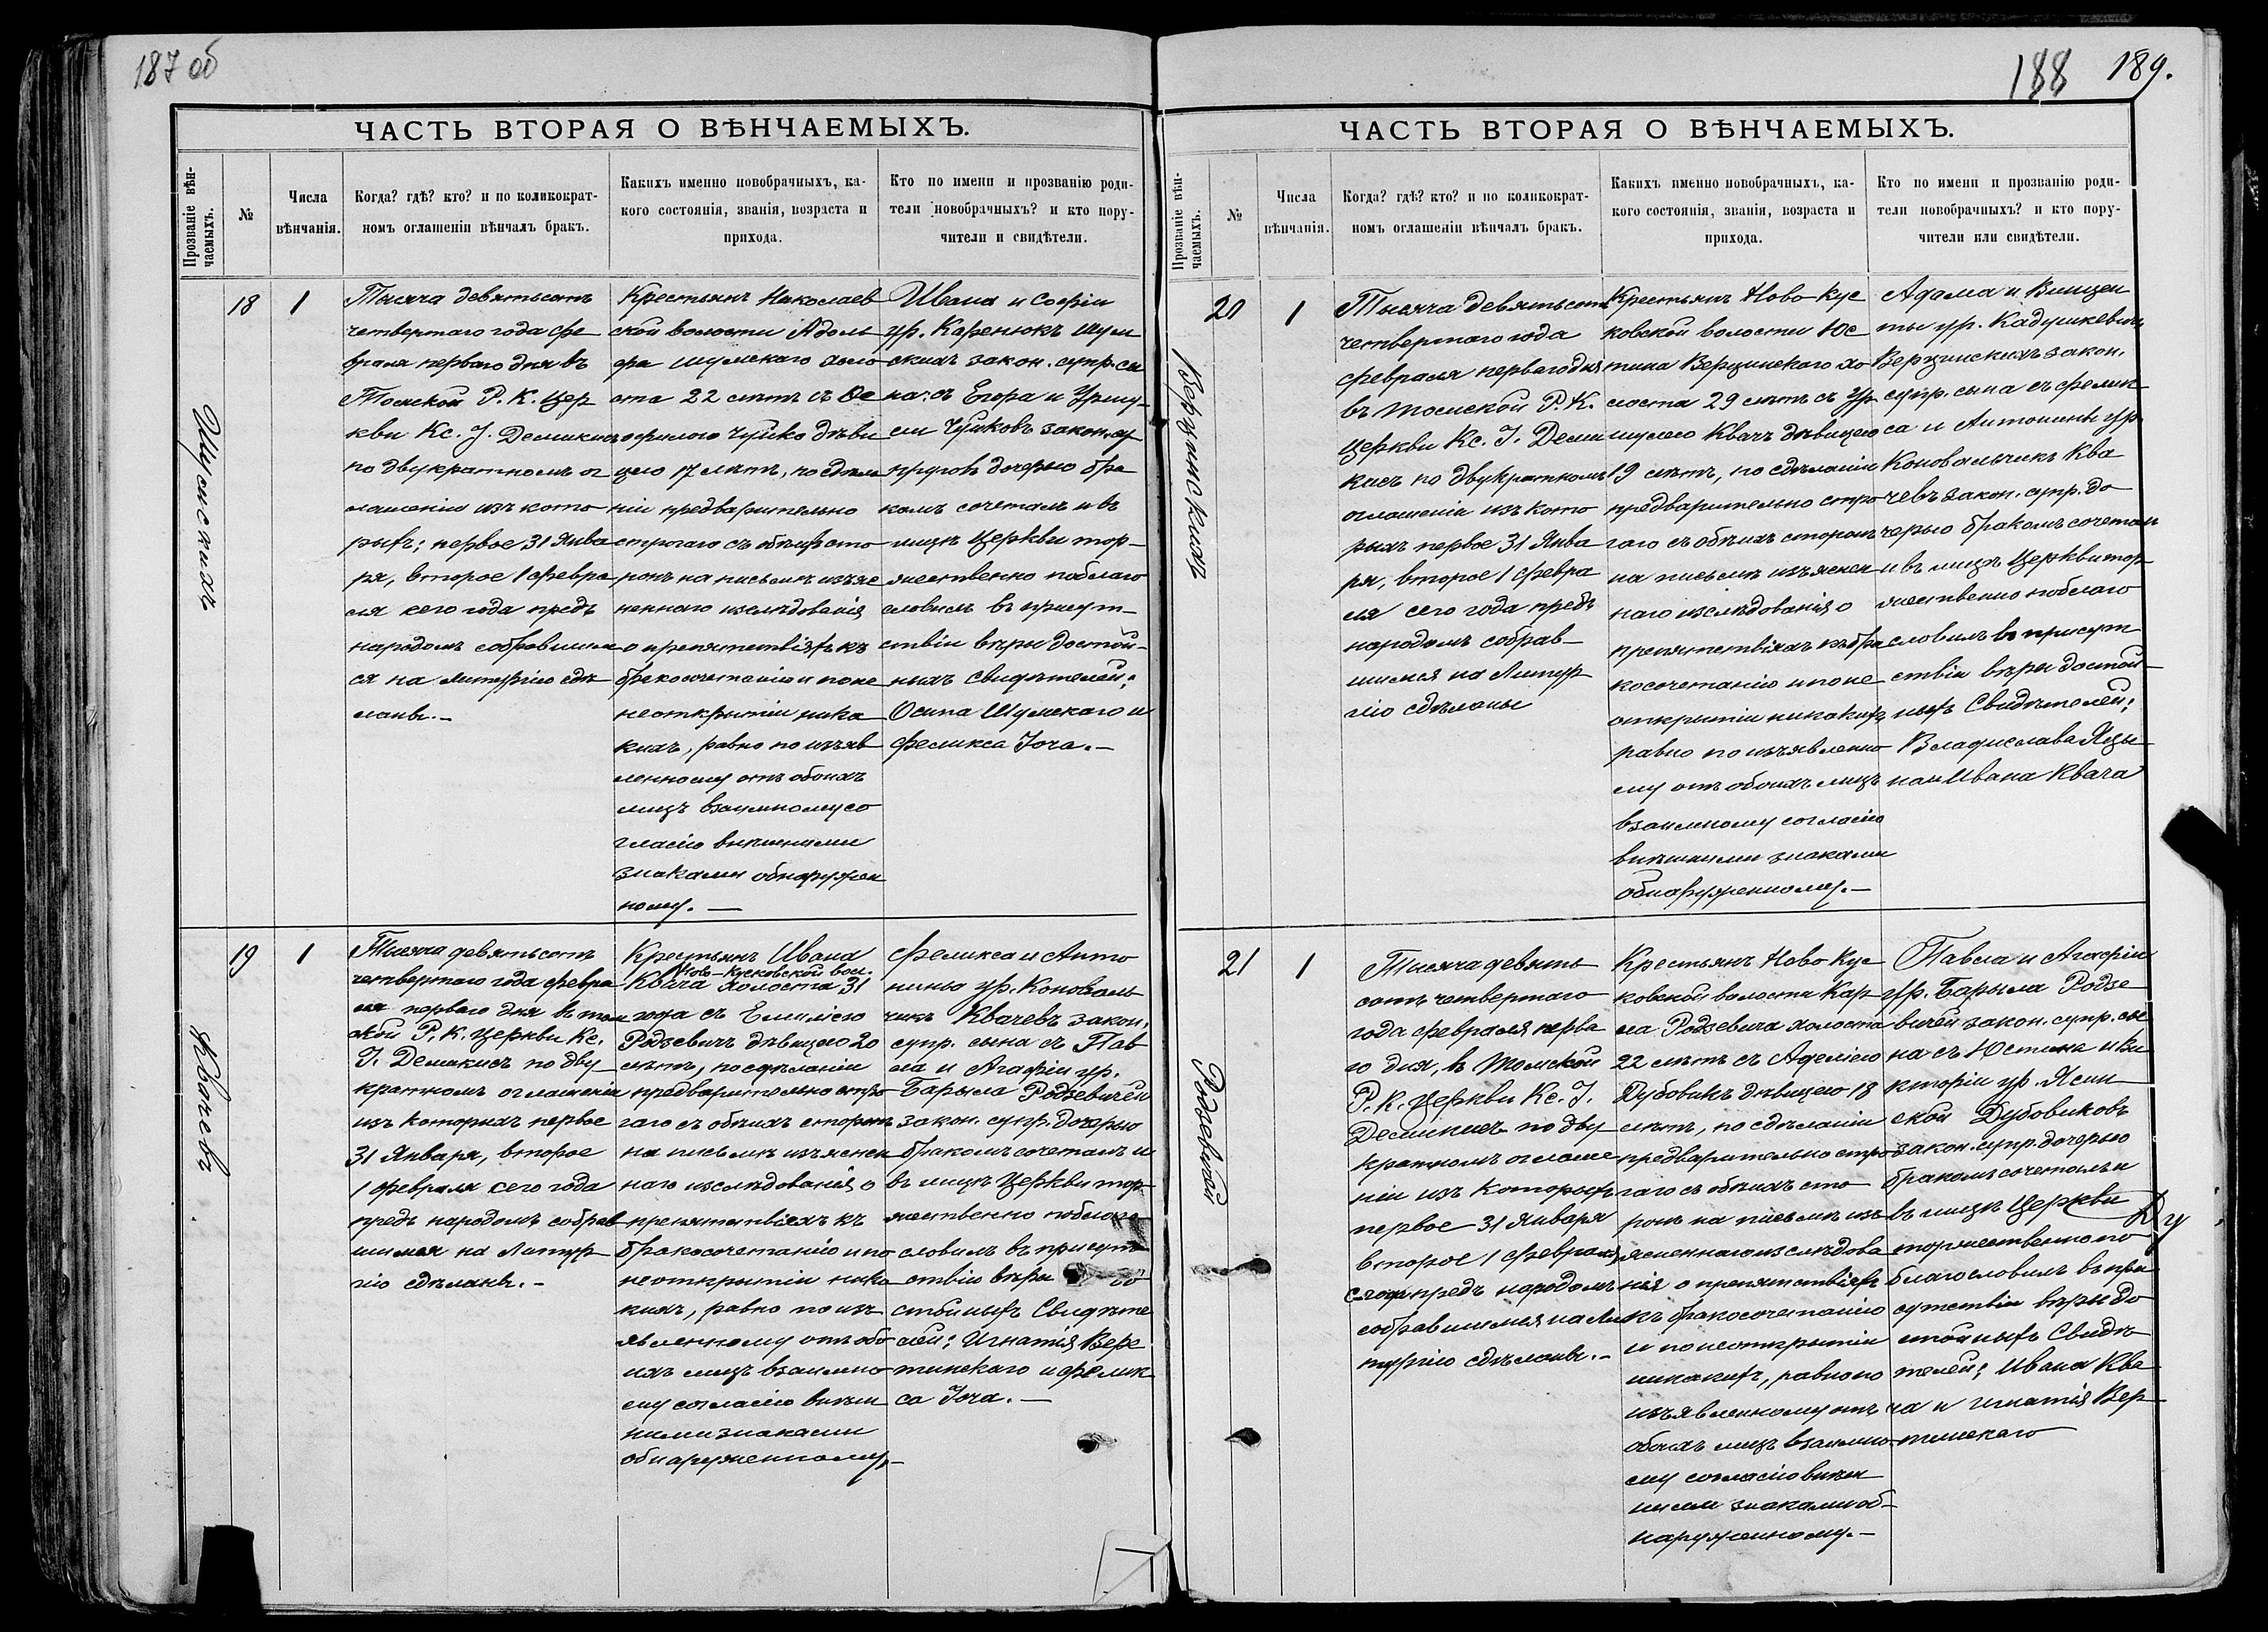 187 об
ЧАСТЬ ВТОРАЯ О ВѢНЧАЕМЫХЪ.
Прозваніе вѣн-
чаемыхъ.
№
Числа
вѣнчанія.
Когда? гдѣ? кто? и по коликократ-
номъ оглашеніи вѣнчалъ бракъ.
Какихъ именно новобрачныхъ, ка-
кого состоянія, званія, возраста и
прихода.
Кто по имени и прозванію роди-
тели новобрачныхъ? и кто пору-
чители и свидѣтели.
Шумскихъ
18
1
Тысяча девятьсотъ
четвертаго года фе
враля перваго дня въ
Томской Р. К. Цер
кви Кс. І. Демикисъ
по двукратномъ ог
лашеніи изъ кото
рыхъ: первое 31 Янва
ря, второе 1 февра
ля сего года предъ
народомъ собравшим
ся на Литургію сдѣ
ланы.-
Крестьянъ Николаев
ской волости Адоль
фа Шумскаго холо
ста 22 лѣтъ съ
Чуйко дѣви
цею 17 лѣтъ, по сдѣла
ніи предварительно
строгаго съ обѣихъ сто
ронъ на письмѣ изъяс
неннаго изслѣдованія
о препятствіяхъ къ
бракосочетанію и по не
неоткрытіи ника
кихъ, равно по изъяв
ленному отъ обоихъ
лицъ взаимному со
гласію внѣшними
знаками обнаружен
ному.-
Ивана и Софіи
ур. Каренюкъ Шум
скихъ закон. супр. сы
на: съ Егора и Уршу-
ли Чуйковъ закон. су
пруговъ дочерью бра
комъ сочеталъ и въ
лицѣ Церкви тор-
жественно поблаго
словилъ въ присут-
ствіи вѣры достой-
ныхъ Свидѣтелей:
Осипа Шумскаго и
Феликса Гоча.-
Квачевъ
19
1
Тысяча девятьсотъ
четвертаго года февра
ля перваго дня въ Том
ской Р. К. Церкви Кс.
І. Демикисъ по дву
кратномъ оглашеніи
изъ которыхъ первое
31 Января, второе
1 февраля сего года
предъ народомъ собрав
шимся на Литур
гію сдѣланы.-
Крестьянъ Ивана
Ново-Кусковской вол.
Квача холоста 31
года съ Емиліею
Родзевичъ дѣвицею 20
лѣтъ, по сдѣланіи
предварительно стро
гаго съ обѣихъ сторонъ
на письмѣ изъяснен
наго изслѣдованія о
препятствіяхъ къ
бракосочетанію и по
неоткрытіи ника
кихъ, равно по изъ
явленному отъ обо
ихъ лицъ взаимно
му согласію внѣш
ними знаками
обнаруженному.-
Феликса и Анто
нины ур. Коноваль
чикъ Квачевъ закон.
супр. сына съ Пав
ла и Агафіи ур.
Барыла Родзевичей
закон. супр. дочерью
бракомъ сочеталъ и
въ лицѣ Церкви тор
жественно поблаго
словилъ въ присут
ствіи вѣры до
стойныхъ Свидѣте
лей: Игнатія Вер
тинскаго и Феликса
са Гоча.-
188 189.
ЧАСТЬ ВТОРАЯ О ВѢНЧАЕМЫХЪ.
Прозваніе вѣн-
чаемыхъ.
№
Числа
вѣнчанія.
Когда? гдѣ? кто? и по коликократ-
номъ оглашеніи вѣнчалъ бракъ.
Какихъ именно новобрачныхъ, ка-
кого состоянія, званія, возраста и
прихода.
Кто по имени и прозванію роди-
тели новобрачныхъ? и кто пору-
чители или свидѣтели.
Верцинскихъ
20
1
Тысяча девятьсотъ
четвертаго года
февраля перваго дня
въ Томской Р. К.
Церкви Кс. І. Деми
кисъ по двукратномъ
оглашеніи изъ кото
рыхъ первое 31 Янва
ря, второе 1 февра
ля сего года предъ
народомъ собрав-
шимся на Литур
гію сдѣланы
Крестьянъ Ново Кус
ковской волости Юс
тина Верцинскаго хо
лоста 29 лѣтъ съ Ур
шулею Квачъ дѣвицею
19 лѣтъ, по сдѣланіи
предварительно стро
гаго съ обѣихъ сторонъ
на письмѣ изъяснен
наго изслѣдованія о
препятствіяхъ къ бра
косочетанію и по не
открытіи никакихъ,
равно по изъявленно
му отъ обоихъ лицъ
взаимному согласію
внѣшними знаками
обнаруженному.-
Адама и Винцен
ты ур. Кадушкевичъ
Верцинскихъ закон.
супр. сына съ Феликса
са и Антонины ур.
Коновальчикъ Ква
чевъ закон. супр. до
черью бракомъ сочеталъ
и въ лицѣ Церкви тор
жественно поблаго
словилъ въ присут
ствіи вѣры достой-
ныхъ Свидѣтелей:
Владислава Яцы
на и Ивана Квача
Родзевичей
21
1
Тысяча девять
сотъ четвертаго
года февраля перва
го дня, въ Томской
Р. К. Церкви Кс. І.
Демикисъ по дву
кратномъ оглаше
ніи изъ которыхъ
первое 31 Января
второе 1 февраля
с. года предъ народомъ
собравшимся на Ли
тургію сдѣланы.-
Крестьянъ Ново Кус
ковской волости Кар
ла Родзевича холоста
22 лѣтъ съ Аделіею
Дубовикъ дѣвицею 18
лѣтъ, по сдѣланіи
предварительно стро
гаго съ обѣихъ сто
ронъ на письмѣ изъ
ясненнаго изслѣдова
нія о препятствіяхъ
къ бракосочетанію
и по неоткрытіи
никакихъ, равно по
изъявленному отъ
обоихъ лицъ взаимно
му согласію внѣш
ними знаками об-
наруженному.-
Павла и Агафіи
ур. Барыла Родзе
вичей закон. супр. сы
на съ Юстина и Ви
кторіи ур. Ясин
ской Дубовиковъ
закон. супр. дочерью
бракомъ сочеталъ и
въ лицѣ Церкви
торжественно по
благословилъ въ при
сутствіи вѣры до
стойныхъ Свидѣ
телей: Ивана Ква
ча и Игнатія Вер
тинскаго